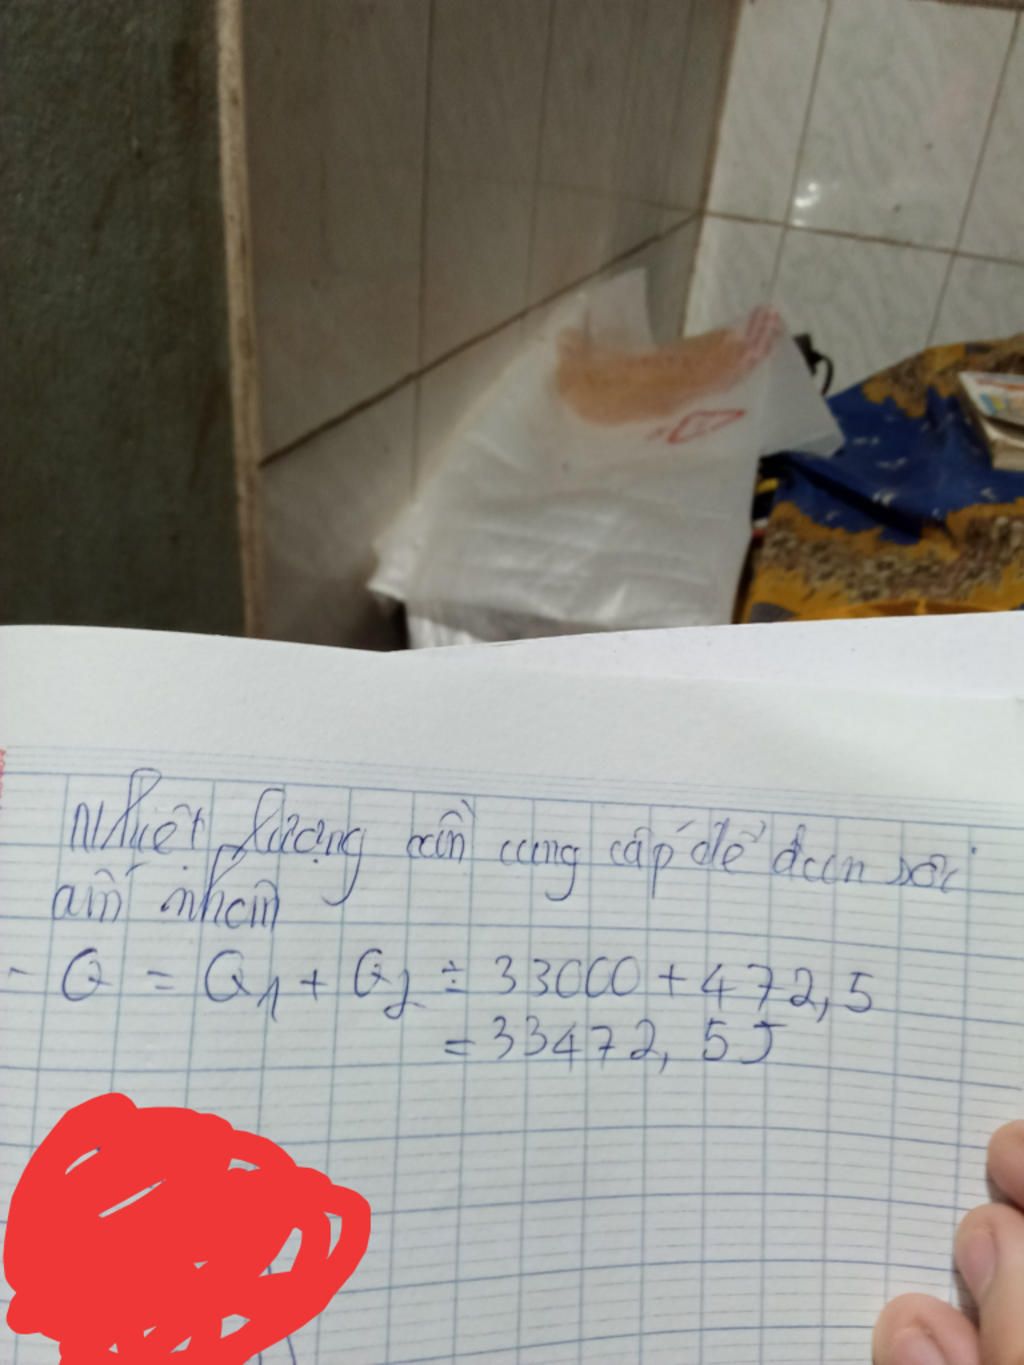 Nhiệt lượng cần cung cấp để đun sôi
ấm nhôm
- Q = Q1 + Q2 = 33000 + 472,5
= 33472,5J